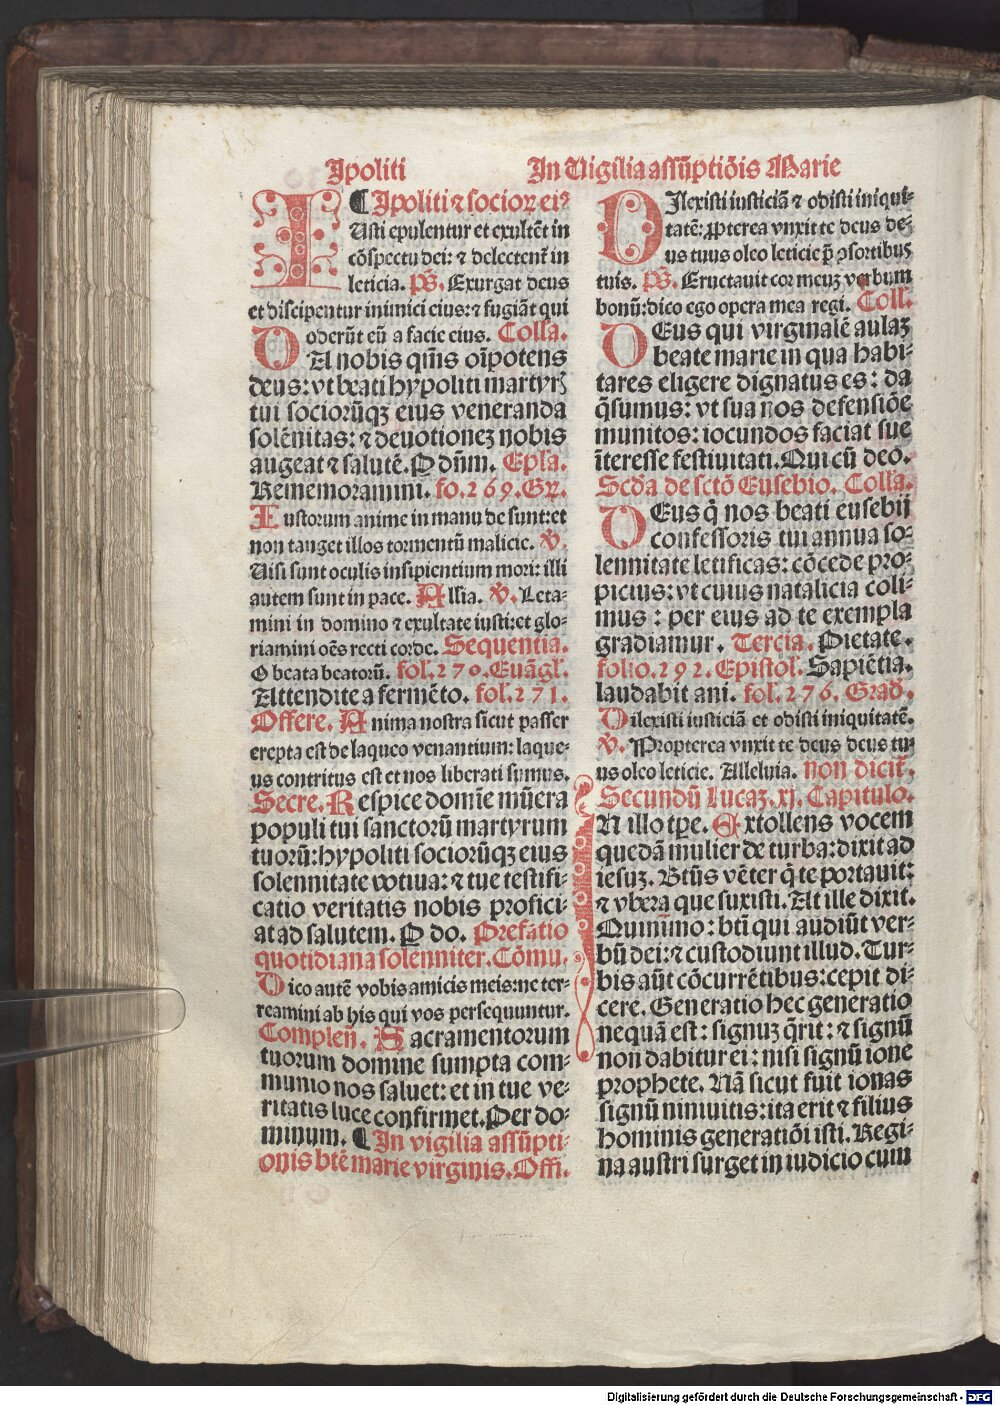 Ipoliti
In Vigilia assūptiōis Marie
¶ Ipoliti ⁊ socioꝝ eiꝰ
IUsti epulentur et exultēt in
cōspectu dei: ⁊ delectent᷑ in
leticia. Ps̄. Exurgat deus
et discipentur inimici eius: ⁊ fugiāt qui
oderūt eū a facie eius. Colla.
DA nobis qm̄s oīpotens
deus: vt beati hypoliti martyrꝭ
tui sociorūqꝫ eius veneranda
solēnitas: ⁊ deuotioneꝫ nobis
augeat ⁊ salutē. P dn̄m. Epl̄a.
Rememoramini. fo.269. Gr.
Iustorum anime in manu de sunt: et
non tanget illos tormentū malicie. V̄.
Uisi sunt oculis insipientium mori: illi
autem sunt in pace. Allia. V̄. Leta-
mini in domino ⁊ exultate iusti: et glo-
riamini oēs recti corde. Sequentia.
O beata beatorū. fol.270. Euāgl̄.
Attendite a fermēto. fol.271.
Offere. Anima nostra sicut passer
erepta est de laqueo venantium: laque-
us contritus est et nos liberati sumus.
Secre. Respice domīe mūera
populi tui sanctorū martyrum
tuorū: hypoliti sociorūqꝫ eius
solennitate votiua: ⁊ tue testifi-
catio veritatis nobis profici-
at ad salutem. P do. Prefatio
quotidiana solenniter. Cōmu.
Dico autē vobis amicis meis: ne ter-
reamini ab his qui vos persequuntur.
Complen̄. Sacramentorum
tuorum domine sumpta com-
munio nos saluet: et in tue ve-
ritatis luce confirmet. Per do-
minum. ¶ In vigilia assūpti-
onis btē marie virginis. Offi.
DIlexisti iusticiā ⁊ odisti iniqui-
tatē: ꝓpterea vnxit te deus de-
us tuus oleo leticie p̄ ↄsortibuꝫ
tuis. Ps̄. Eructauit cor meuꝫ verbum
bonū: dico ego opera mea regi. Coll.
DEus qui virginalē aulaꝫ
beate marie in qua habi-
tares eligere dignatus es: da
q̄sumus: vt sua nos defensiōe
munitos: iocundos faciat sue
īteresse festiuitati. Qui cū deo.
Scd̄a de sctō Eusebio. Colla.
DEus q̄ nos beati eusebij
confessoris tui annua so-
lennitate letificas: cōcede pro-
picius: vt cuius natalicia coli-
mus: per eius ad te exempla
gradiamur. Tercia. Pietate.
folio.292. Epistol̄. Sapiētia.
laudabit ani. fol.276. Grad̄.
Dilexisti iusticiā et odisti iniquitatē.
V̄. Propterea vnxit te deus deus tu-
us oleo leticie. Alleluia. non dicit᷑.
Secundū Lucaꝫ. xj. Capitulo.
IN illo tp̄e. Extollens vocem
quedā mulier de turba: dixit ad
iesuꝫ. Btūs vēter q̄ te portauit:
⁊ vbera que suxisti. At ille dixit.
Quinīmo: bt̄i qui audiūt ver-
bū dei: ⁊ custodiunt illud. Tur-
bis aūt cōcurrētibus: cepit di-
cere. Generatio hec generatio
nequā est: signuꝫ q̄rit: ⁊ signū
non dabitur ei: nisi signū ione
prophete. Nā sicut fuit ionas
signū niniuitis: ita erit ⁊ filius
hominis generatiōi isti. Regi-
na austri surget in iudicio cum
Digitalisierung gefördert durch die Deutsche Forschungsgemeinschaft - DFG